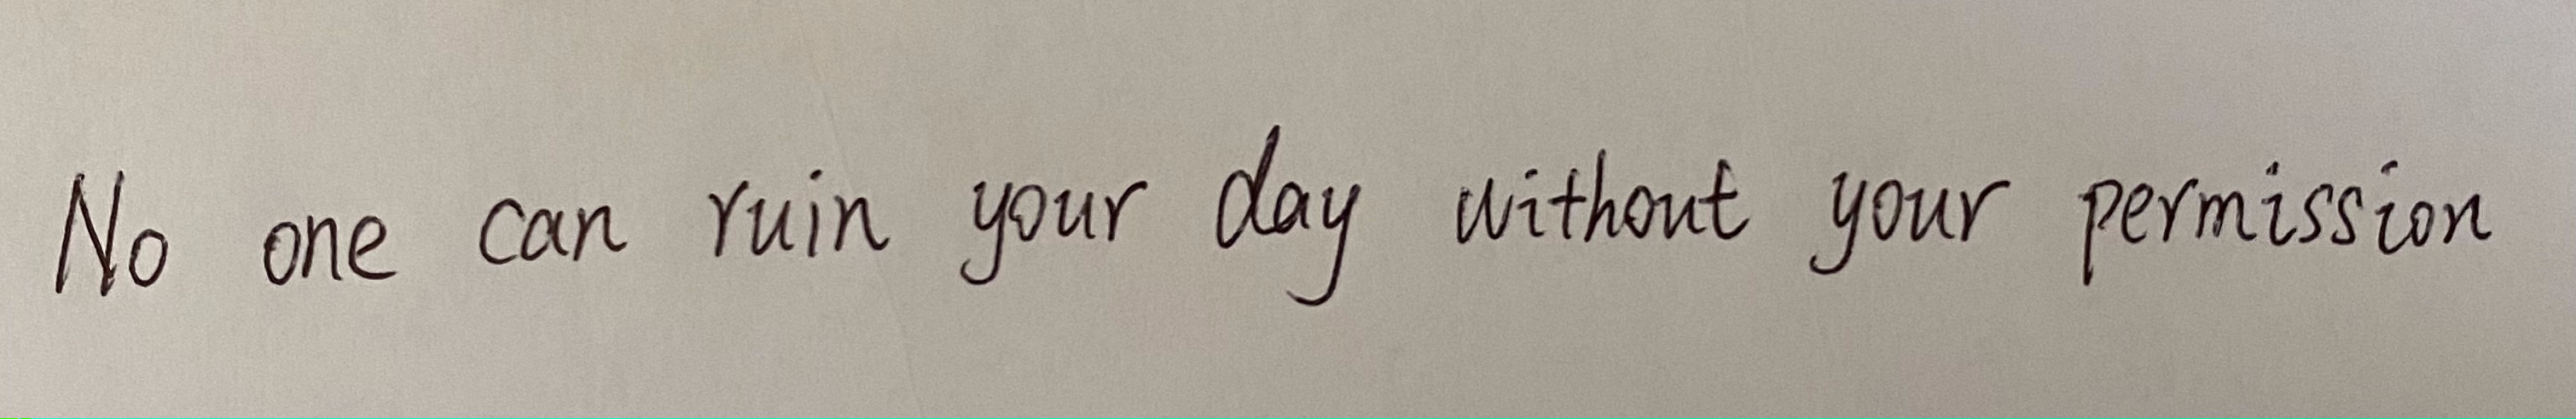 No one can ruin your day without your permission